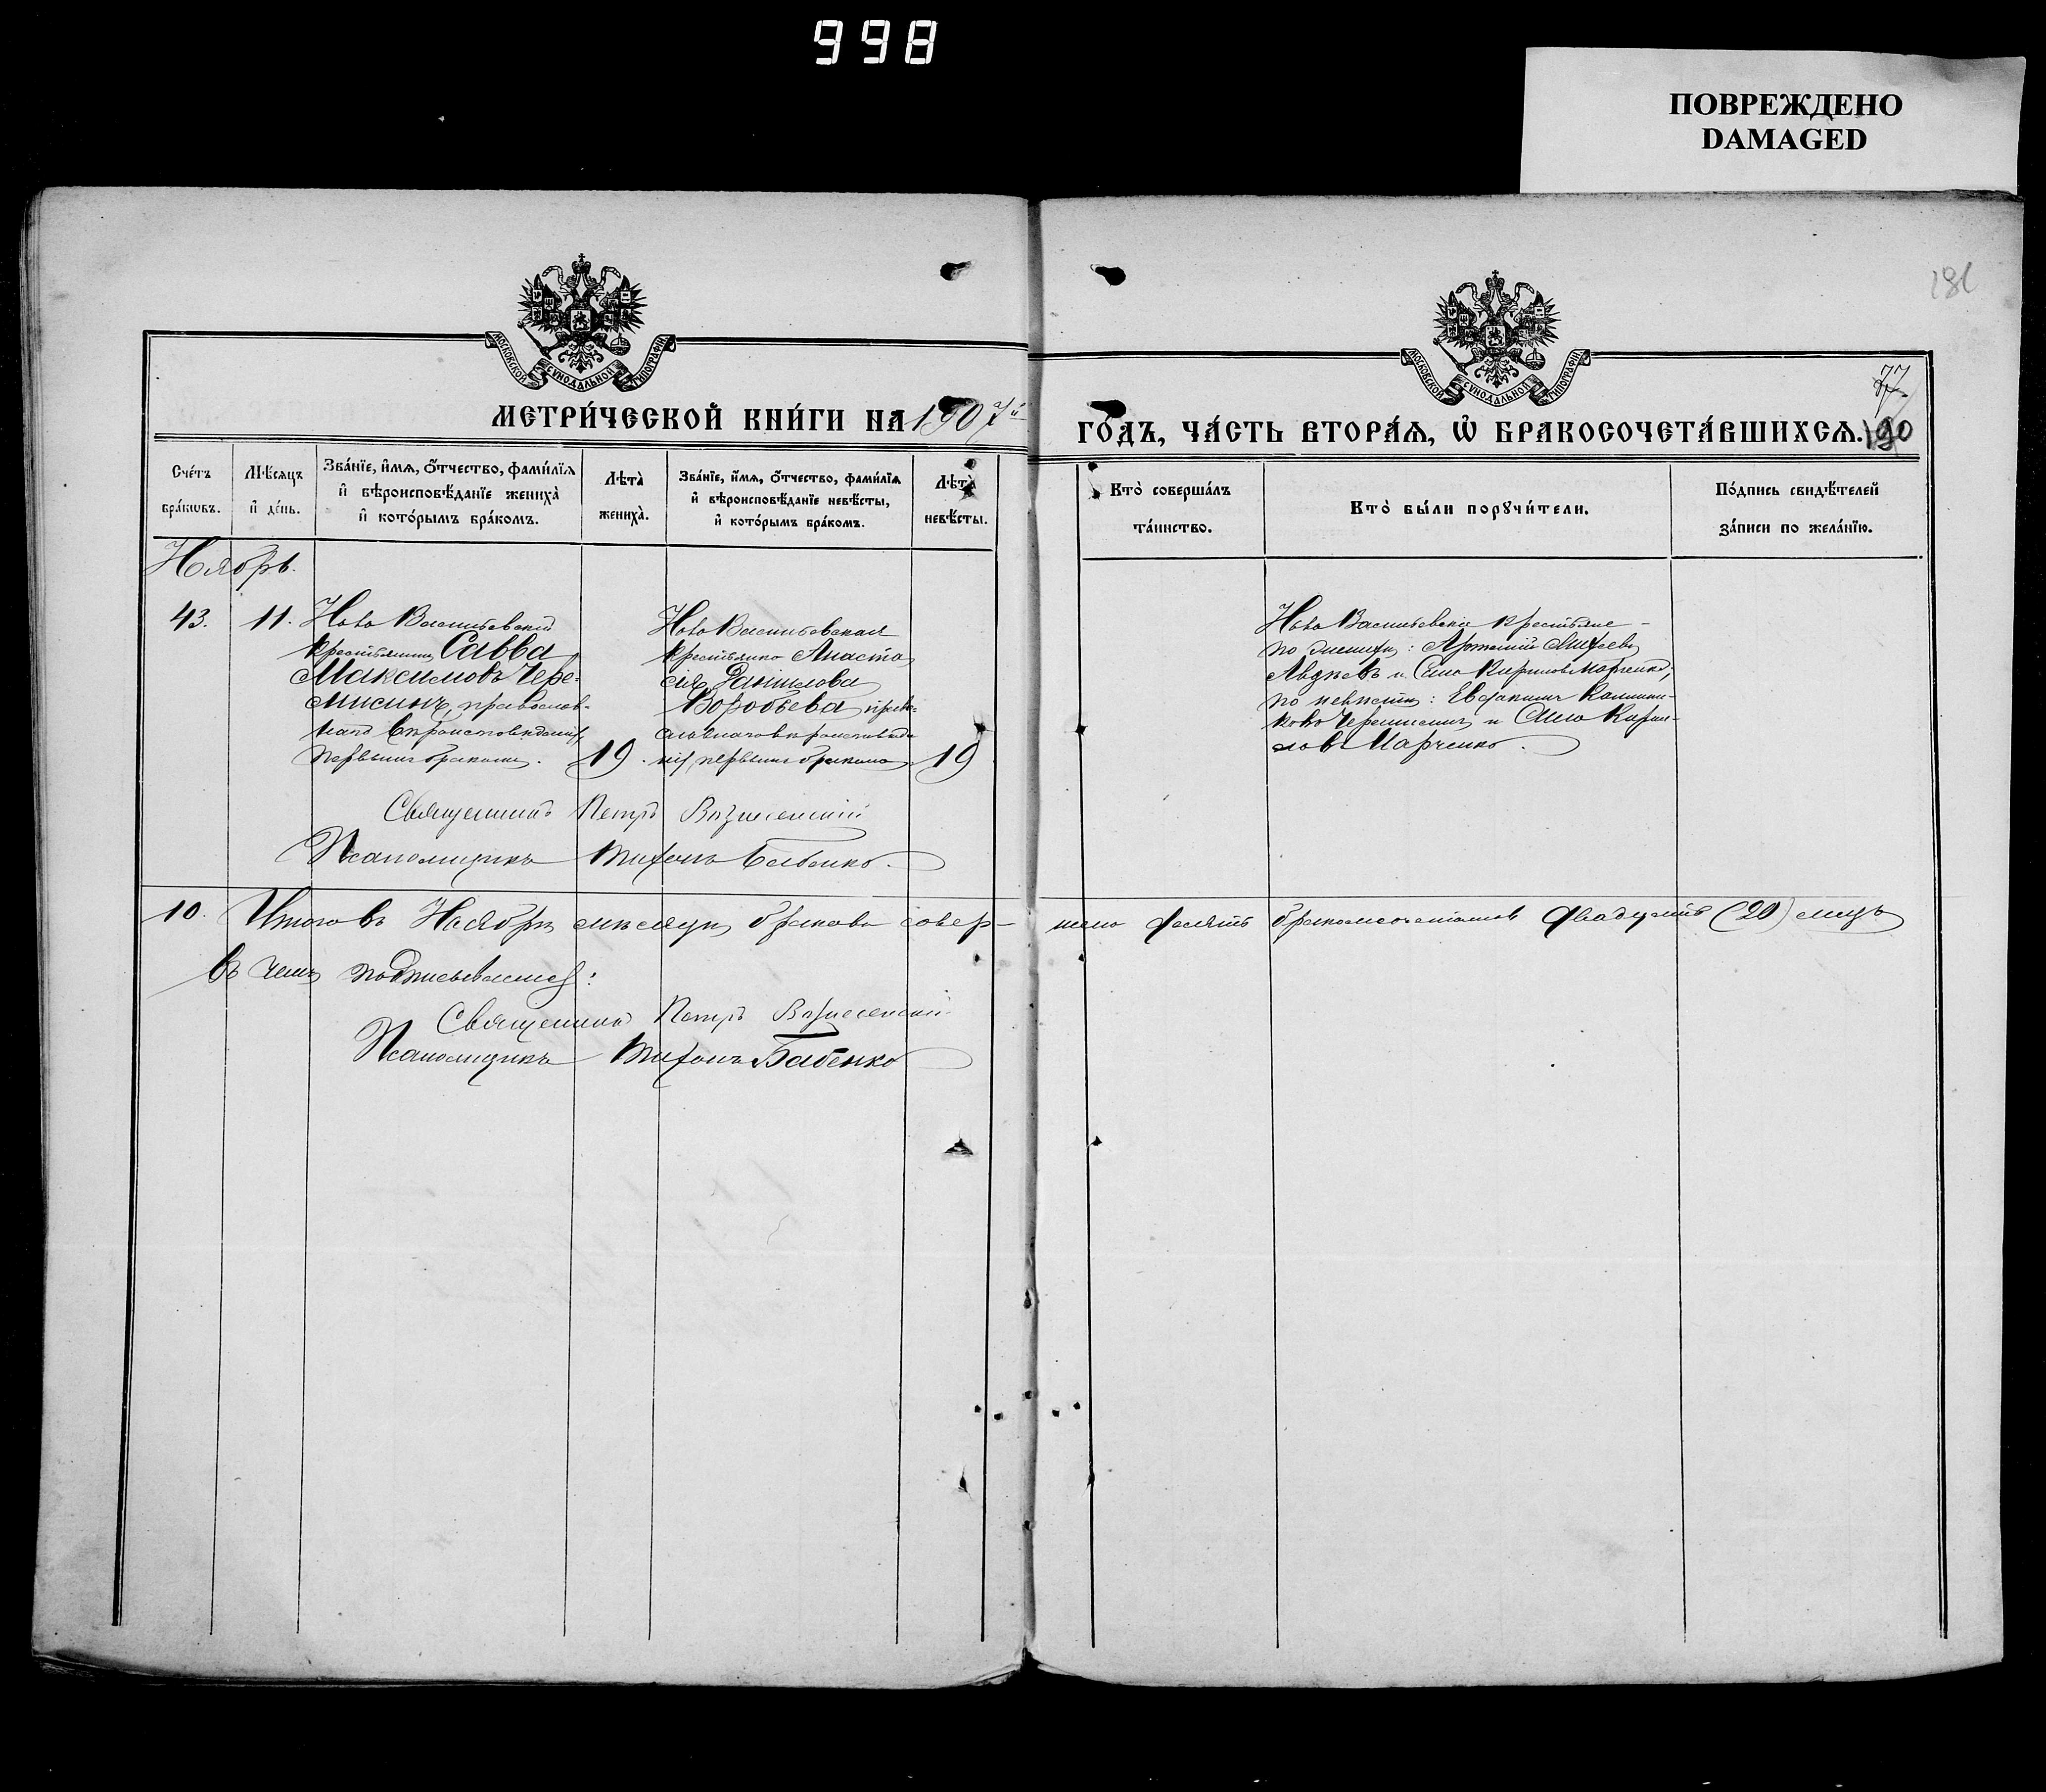 998
ПОВРЕЖДЕНО
DAMAGED
181
МОСКОВСКОЙ СУНОДАЛЬНОЙ ТИПОГРАФІИ
МОСКОВСКОЙ СУНОДАЛЬНОЙ ТИПОГРАФІИ
77
МЕТРИ́ЧЕСКОЙ КНИ́ГИ НА 1907й
ГО́ДЪ, ЧА́СТЬ ВТОРА́Ѧ, Ѡ҆ БРАКОСОЧЕТА́ВШИХСѦ. 190
Сче́тъ
бра́кѡвъ.
Мѣ́сяцъ
и҆ де́нь.
Зва́нїе, и҆́мѧ, ѻ҆́тчество, фами́лїѧ
и҆ вѣроисповѣ́данїе жениха̀
и҆ кото́рымъ бра́комъ.
Лѣта̀
жениха̀.
Зва́нїе, и҆́мѧ, ѻ҆́тчество, фами́лїѧ
и҆ вѣроисповѣ́данїе невѣ́сты,
и҆ кото́рымъ бра́комъ.
Лѣта̀
невѣ́сты.
Кто̀ соверша́лъ
та́инство.
Кто̀ бы́ли порꙋчи́тели.
По́дпись свидѣ́телей
за́писи по жела́нїю.
Ноябрь.
43.
11.
Ново Васильевскій
крестьянинъ Савва
Максимовъ Чере-
мисинъ, православ-
наго вѣроисповѣданія,
первымъ бракомъ.
19.
Ново Васильевская
крестьянка Анаста
сія Данилова
Воробьева, право-
славнаго вѣроисповѣда
нія, первымъ бракомъ
19
Ново Васильевскіе крестьяне
по женихѣ: Артемій Михеевъ
Авдѣевъ и Кириловъ Марченко,
по невѣстѣ: Евсакимъ Калини-
ковъ Черемисинъ и Кирил-
ловъ Марченко.
Священникъ Петръ Вознесенскій
Псаломщикъ Тихонъ Бабенко.
10. Итого въ Ноябрѣ мѣсяцѣ браковъ совер-
шено десять бракосочетаніемъ двадцать (20) лицъ
въ чемъ подписываемся:
Священникъ Петръ Вознесенскій
Псаломщикъ Тихонъ Бабенко